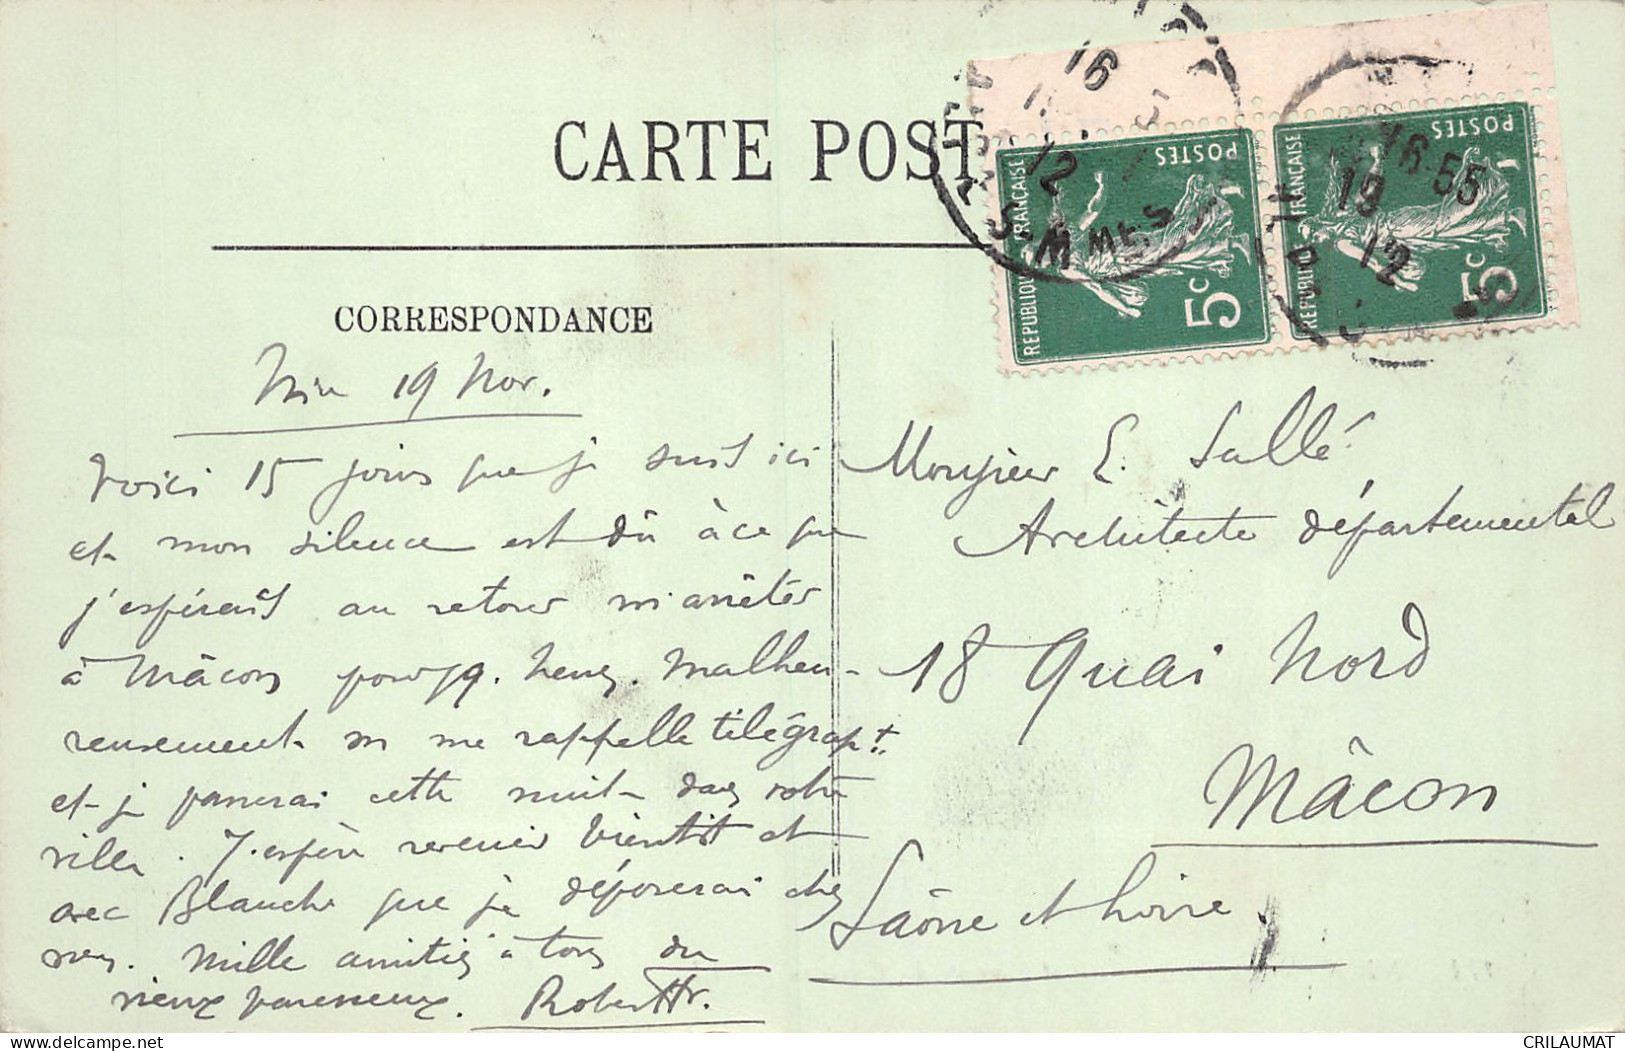 CARTE POST
CORRESPONDANCE
19 Nov.
Voici 15 jours que je suis ici
et mon silence est dû à ce que
j'espérais au retour m'arrêter
à Mâcon pour qq. heures. Malheu-
reusement on me rappelle télégrapt.
et je passerai cette nuit dans votre
ville. J'espère revenir bientôt et
avec Blanche que je déposerai chez
vous. Mille amitiés à tous du
vieux paresseux. Robert
Monsieur E. Sallé
Architecte départemental
18 Quai Nord
Mâcon
Saône et Loire.
POSTES
REPUBLIQUE FRANÇAISE
5c
POSTES
REPUBLIQUE FRANÇAISE
5c
16
12
16 55
19
12
CRILAUMAT